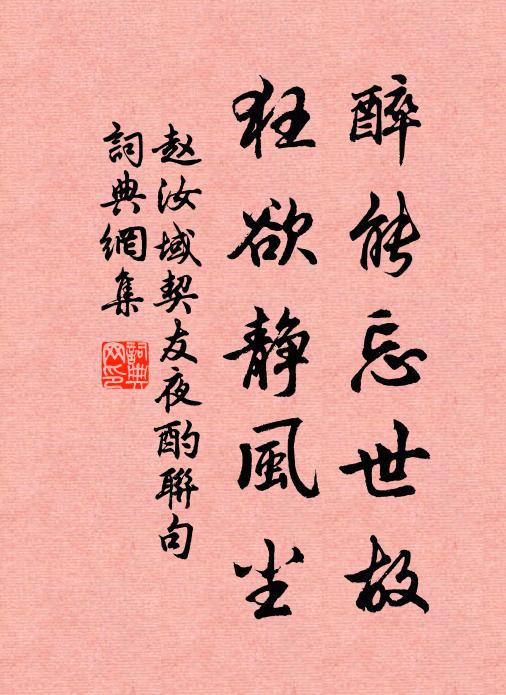 醉能忘世故
狂欲静風尘
赵汝域契友夜酌聯句
詞典網集
詞典网印